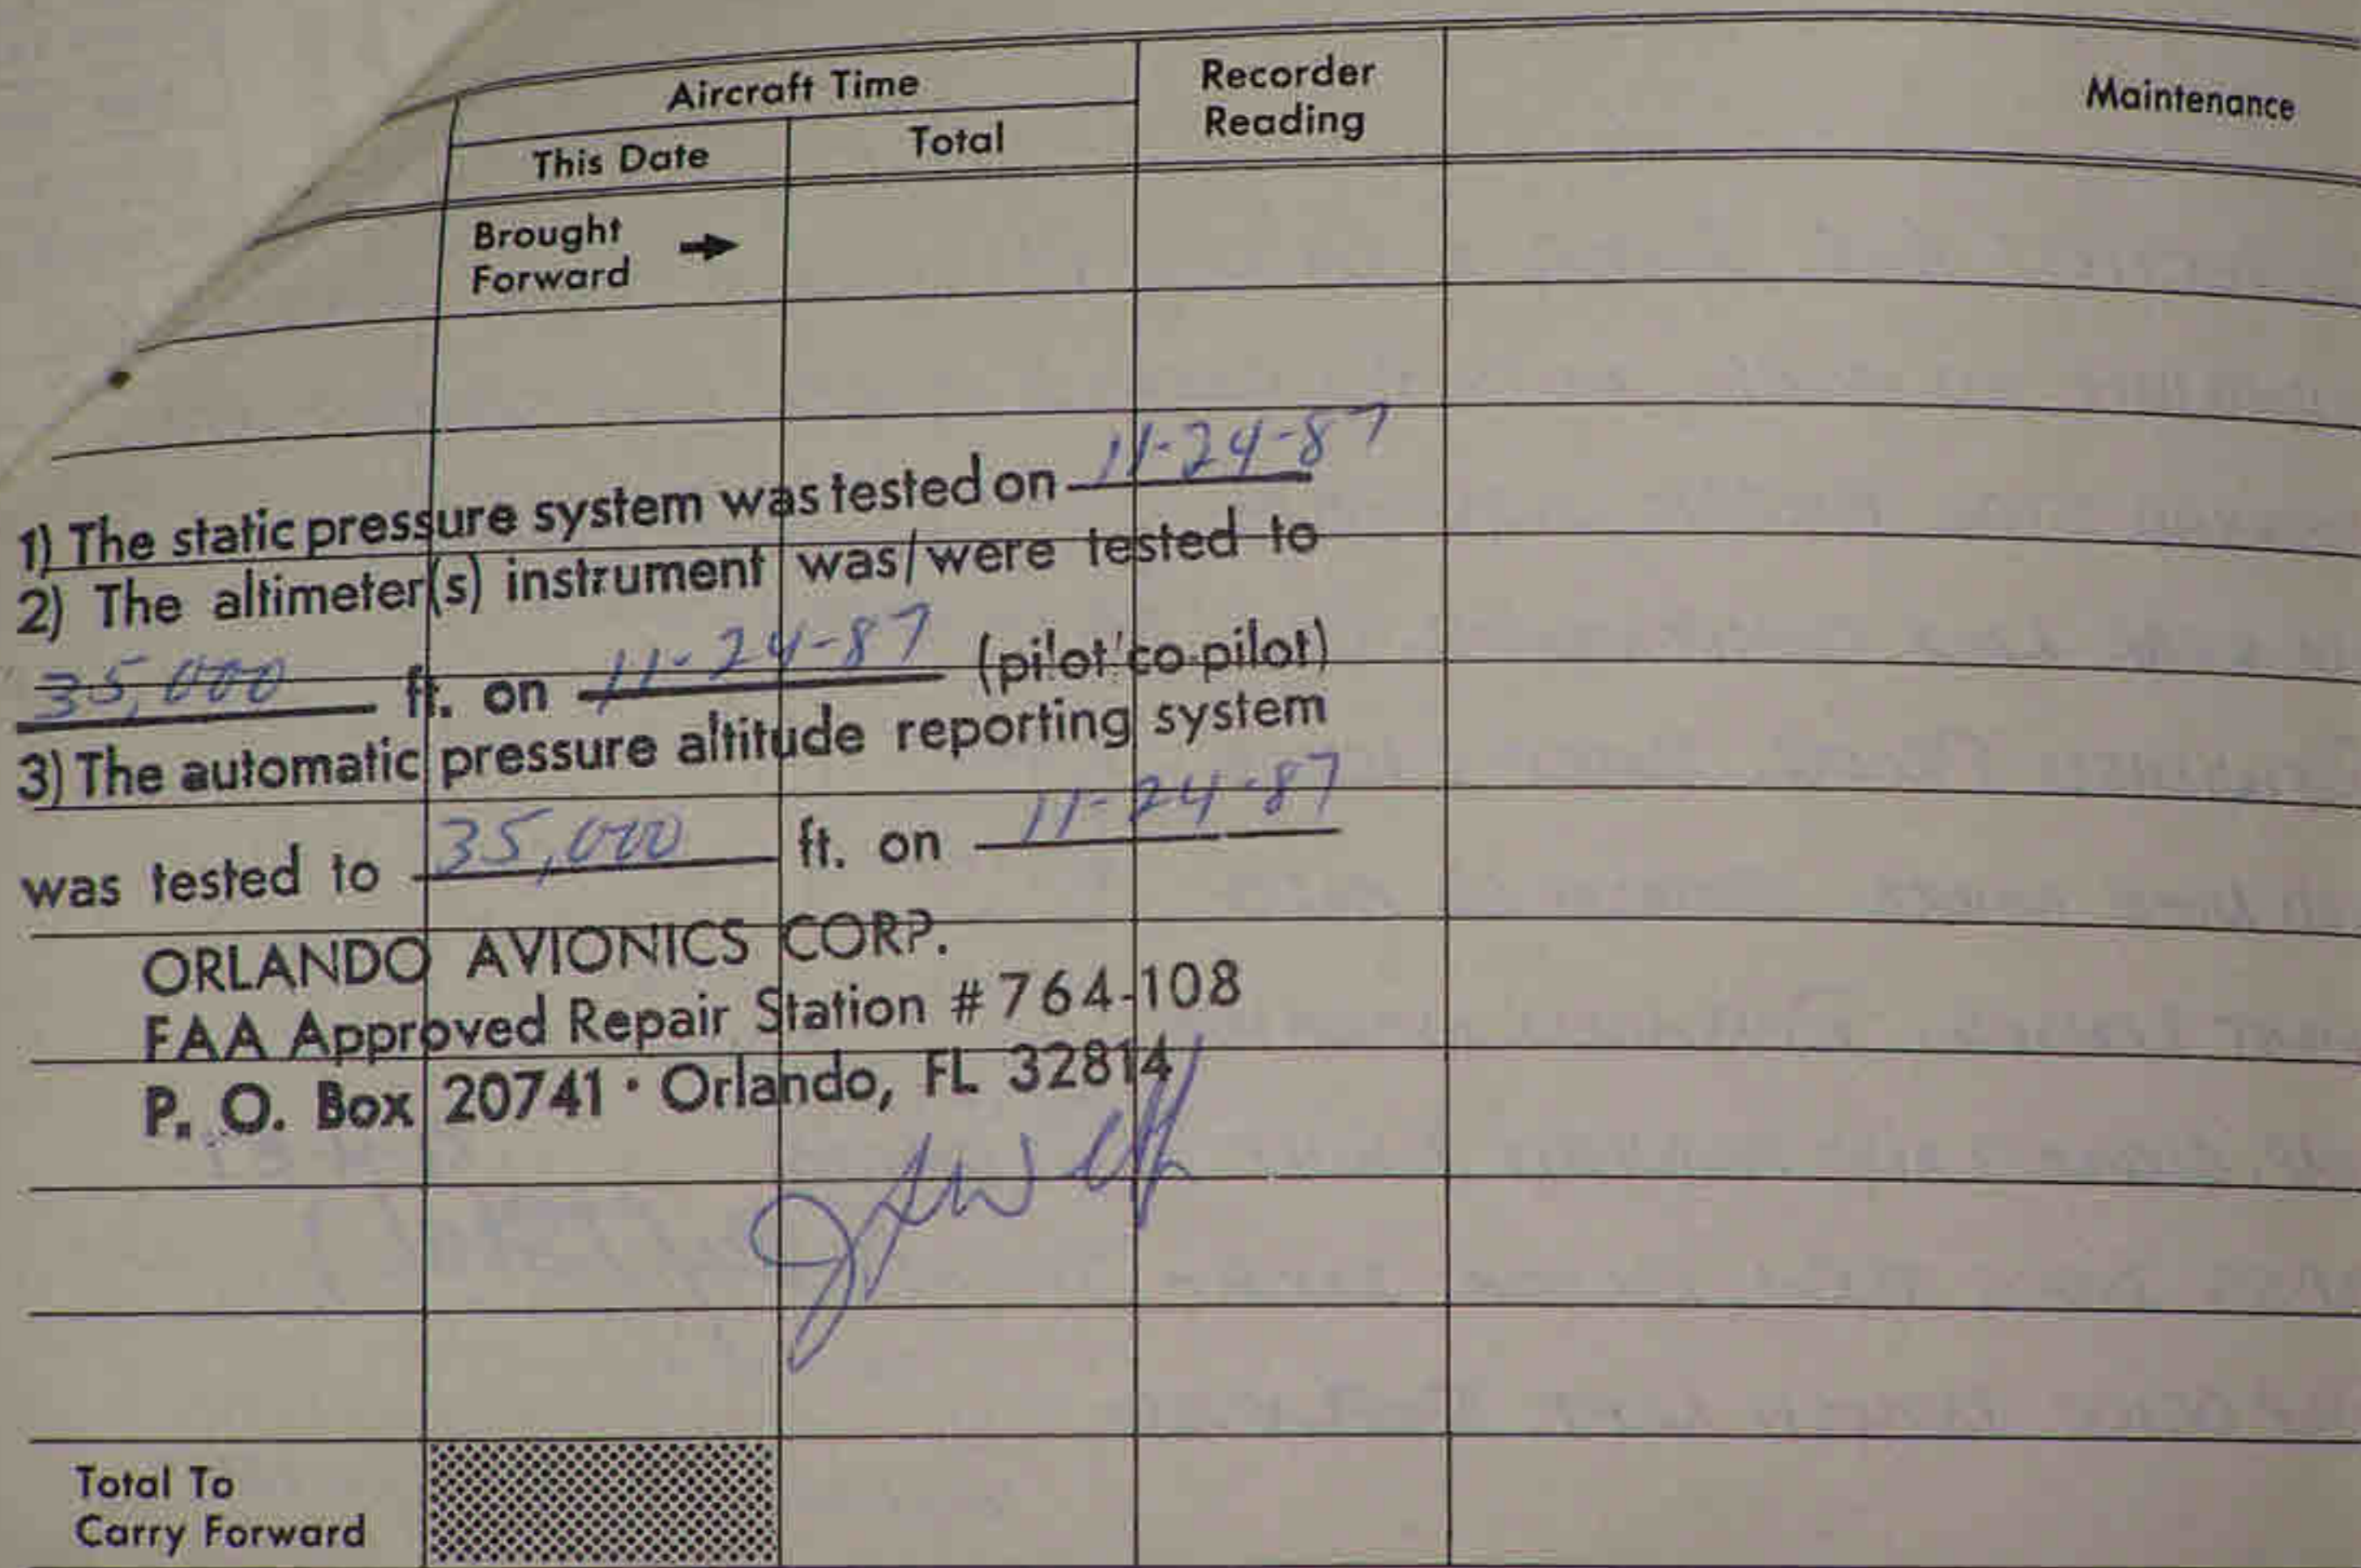 Aircraft Time
Recorder
Reading
Maintenance
This Date
Total
Brought
Forward
1) The static pressure system was tested on 11-24-87
2) The altimeter(s) instrument was/were tested to
35,000 ft. on 11-24-87 (pilot/co-pilot)
3) The automatic pressure altitude reporting system
was tested to 35,000 ft. on 11-24-87
ORLANDO AVIONICS CORP.
FAA Approved Repair Station # 764-108
P. O. Box 20741 · Orlando, FL 32814
Total To
Carry Forward